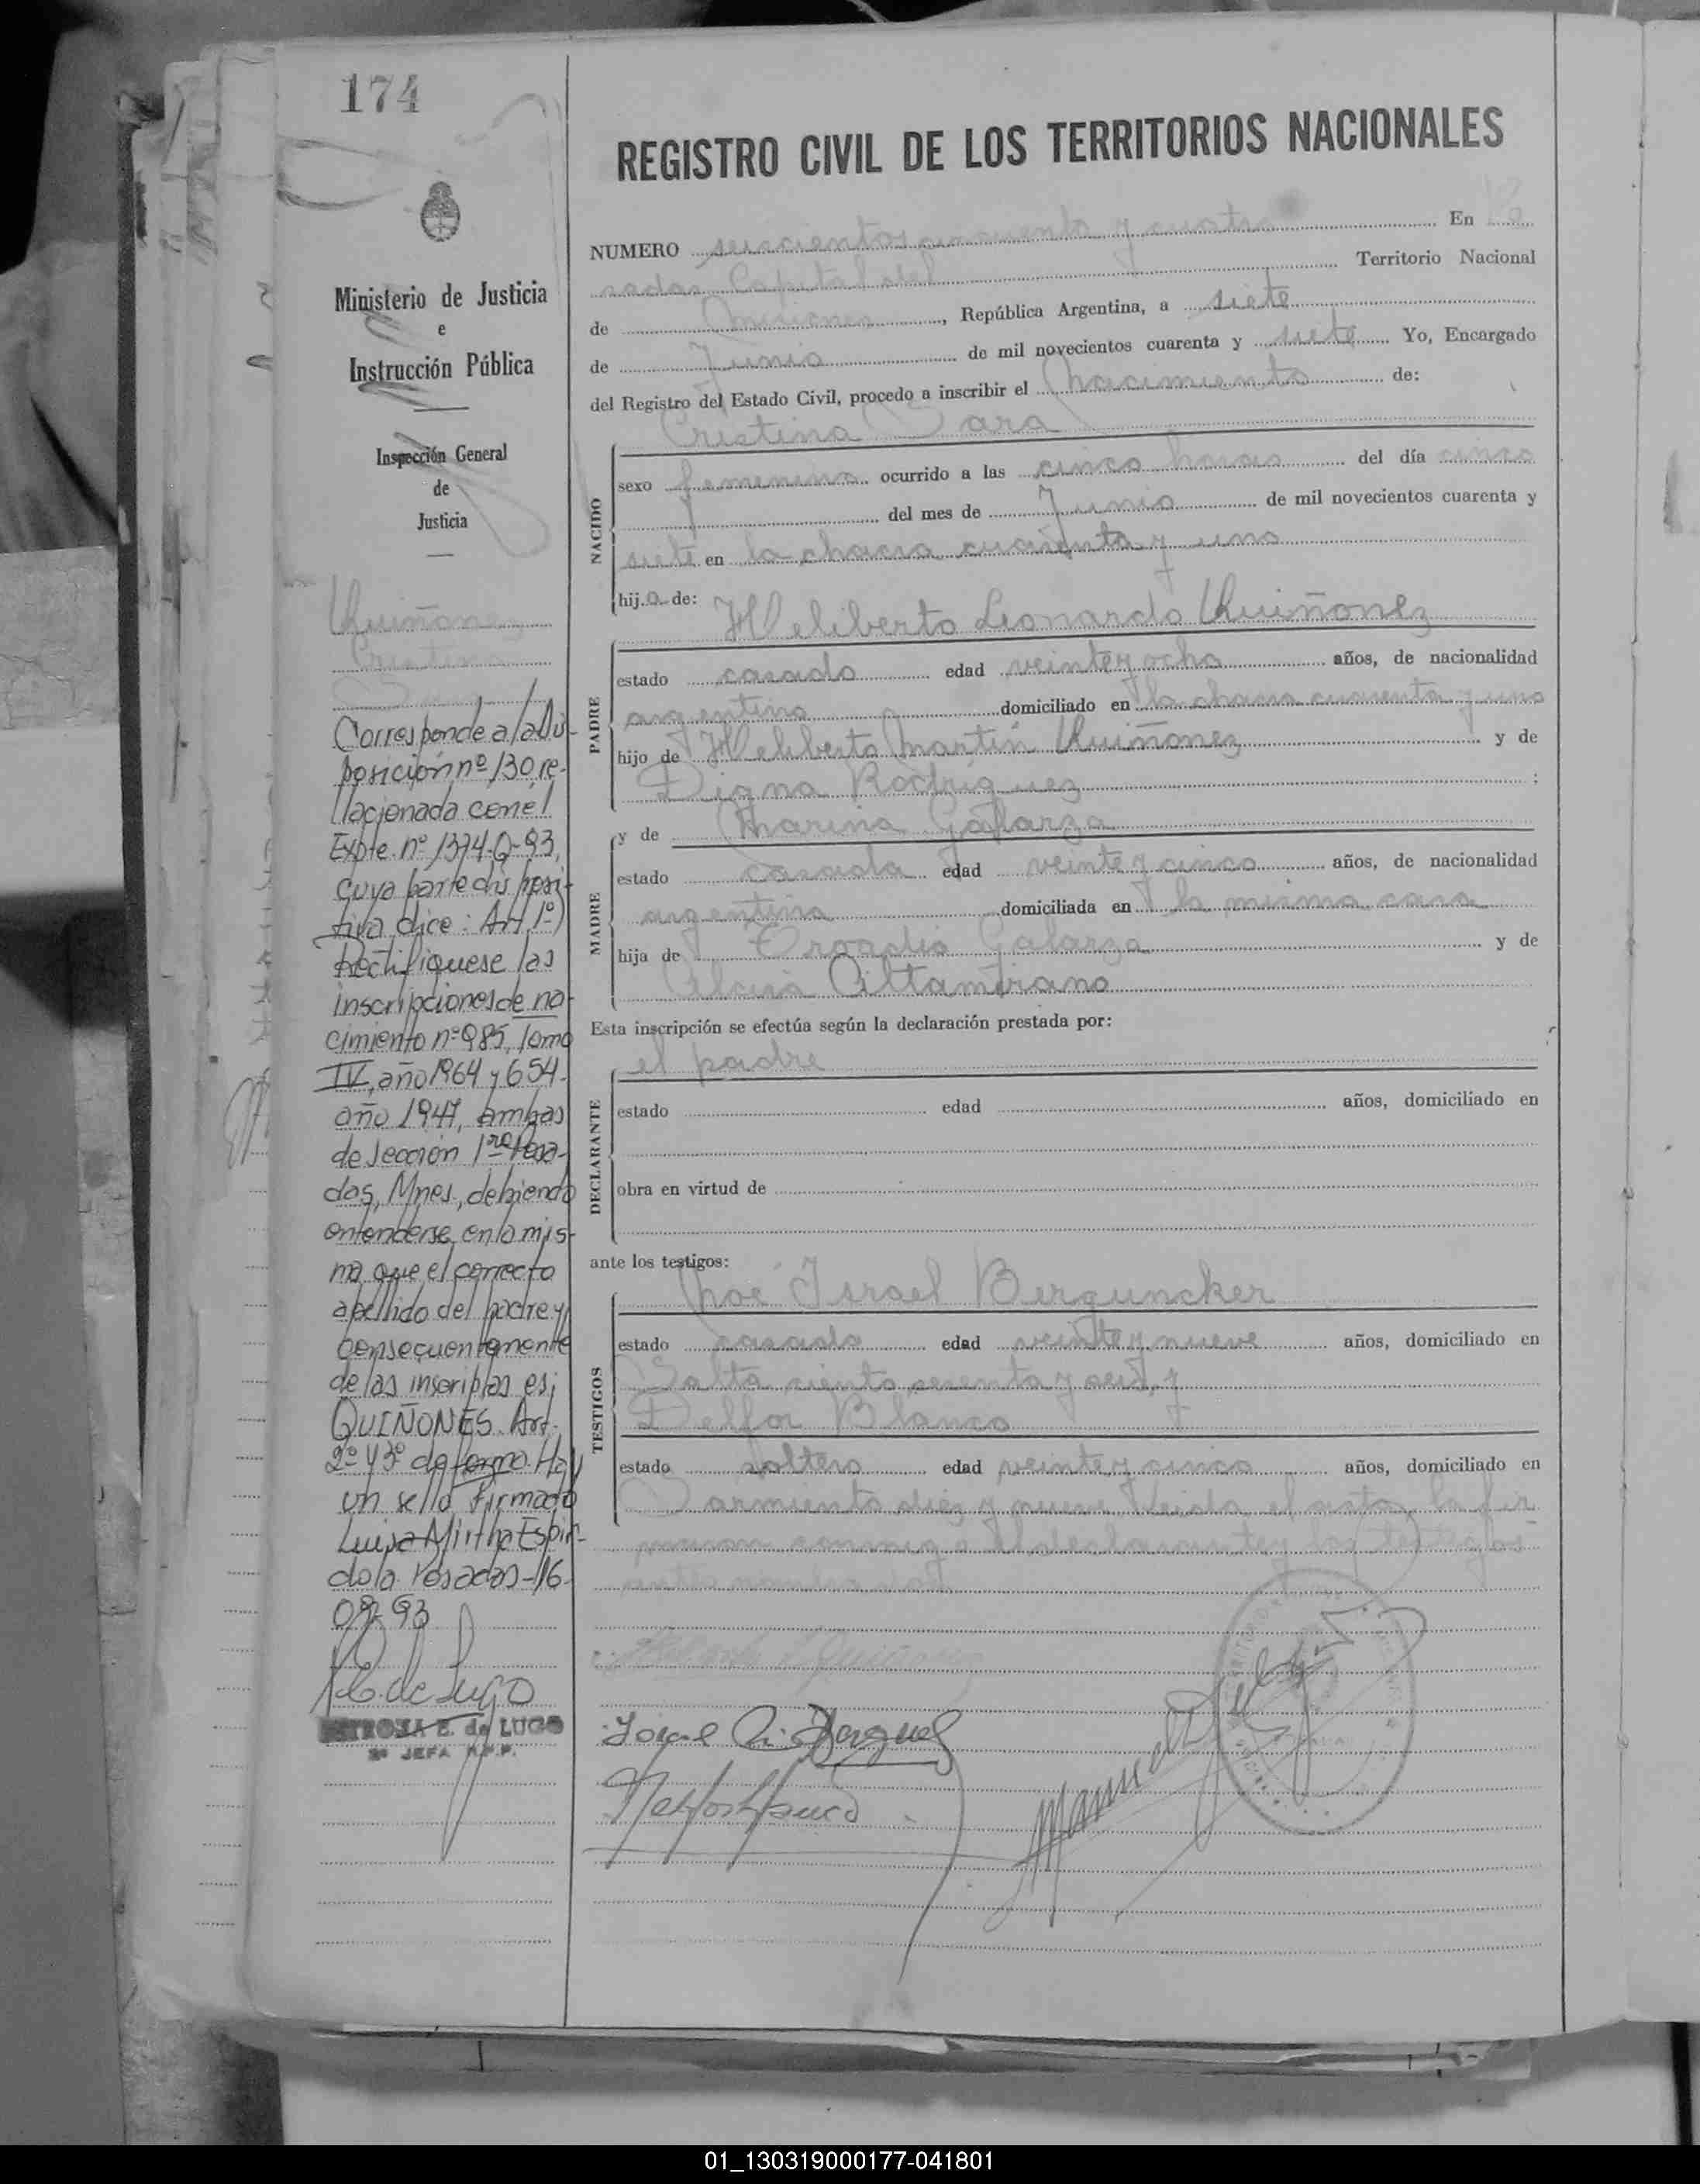 174
Ministerio de Justicia
e
Instrucción Pública
Inspección General
de
Justicia
Quiñonez
Cristina
Corresponde a la Dis-
posición nº 130 re-
lacionada con el
Expte. nº 1374-Q-93,
cuya parte disposi-
tiva dice: Art 1º)
Rectifiquese las
inscripciones de na-
cimiento nº 985, Tomo
IV, año 1964 y 654-
año 1947, ambas
de Sección 1ra Posa-
das, Mnes, debiendo
entenderse en la mis-
ma que el correcto
apellido del padre y
consecuentemente
de las inscriptas es:
QUIÑONES. Art.
2º y 3º de forma. Hay
un sello firmado
Luisa Mirtha Espín-
dola Posadas-16-
09-93
E. de Lugo
E. de LUGO
2º JEFA R.P.P.
REGISTRO CIVIL DE LOS TERRITORIOS NACIONALES
NUMERO seiscientos cincuenta y cuatro En Po
sadas Capital del Territorio Nacional
de Misiones, República Argentina, a siete
de Junio de mil novecientos cuarenta y siete Yo, Encargado
del Registro del Estado Civil, procedo a inscribir el nacimiento de:
Cristina Sara
NACIDO
sexo femenino ocurrido a las cinco horas del día cinco
del mes de Junio de mil novecientos cuarenta y
siete en la chacra cuarenta y uno
hija de: Heliberto Leonardo Quiñonez
PADRE
estado casado edad veinte y ocho años, de nacionalidad
argentina domiciliado en la chacra cuarenta y uno
hijo de Heliberto Martín Quiñonez y de
Digna Rodriguez ;
MADRE
y de Marina Galarza
estado casada edad veinte y cinco años, de nacionalidad
argentina domiciliada en la misma casa
hija de Galarza y de
Altamirano
Esta inscripción se efectúa según la declaración prestada por:
el padre
DECLARANTE
estado edad años, domiciliado en
obra en virtud de
ante los testigos:
TESTIGOS
Noé Israel Berguncker
estado casado edad veinte y nueve años, domiciliado en
Salta ciento sesenta y seis, y
Delfor Blanco
estado soltero edad veinte y cinco años, domiciliado en
Sarmiento diez y nueve Leida el acta la fir
maron conmigo el declarante y los testigos
01_130319000177-041801